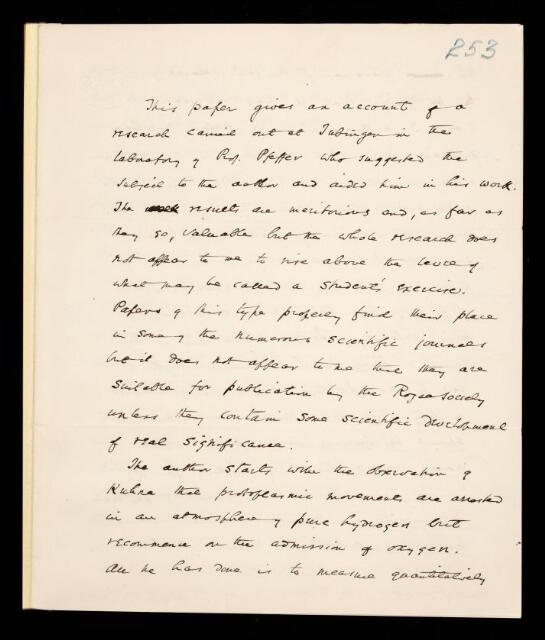 253
This paper gives an account of a
research carried out at Tubingen in the
laboratory of Prof. Pfeffer who suggested the
subject to the author and aided him in his work.
The results are meritorious and, as far as
they go, valuable but the whole research does
not appear to me to rise above the level of
what may be called a student's exercise.
Papers of this type properly find their place
in some of the numerous scientific journals
but it does not appear to me that they are
suitable for publication by the Royal Society
unless they contain some scientific development
of real significance.
The author starts with the observation of
Kuhne that protoplasmic movements are arrested
in an atmosphere of pure hydrogen but
recommence on the admission of oxygen.
All he has done is to measure quantitatively